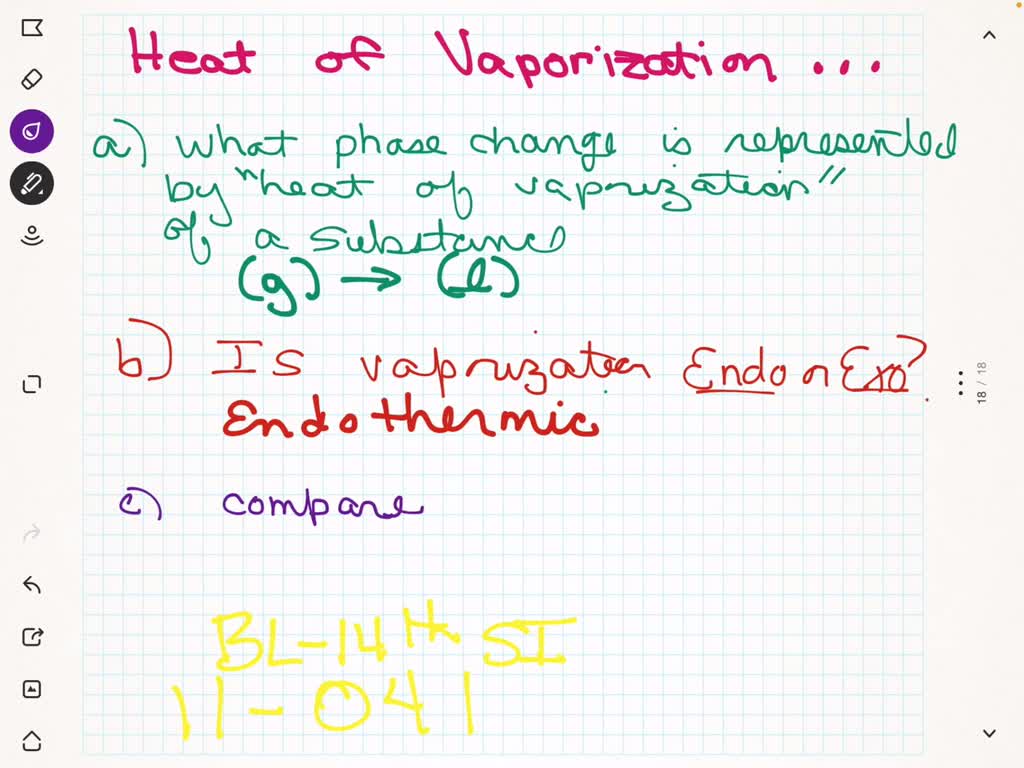 Heat of Vaporization ...
a) what phase change is represented
by "heat of vaprization"
of a substance
(g) → (l)
b) Is vaprization Endo or Exo?
Endothermic
c) compare
BL-14th SI
11-041
18 / 18